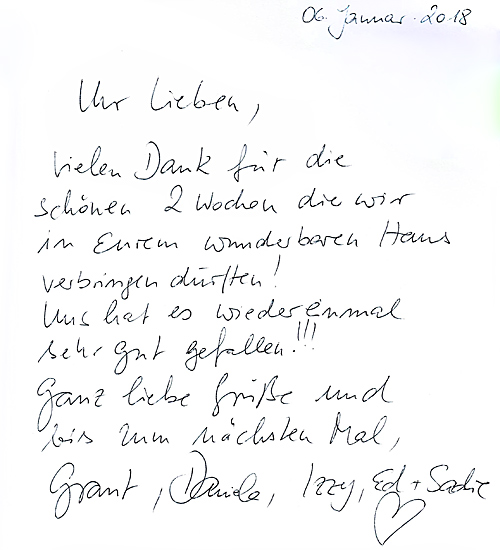 06. Januar 2018
Ihr Lieben,
vielen Dank für die
schönen 2 Wochen die wir
in Eurem wunderbaren Haus
verbringen durften!
Uns hat es wiedereinmal
sehr gut gefallen!!!
Ganz liebe Grüße und
bis zum nächsten Mal,
Grant, Daniela, Izzy, Ed + Sadie